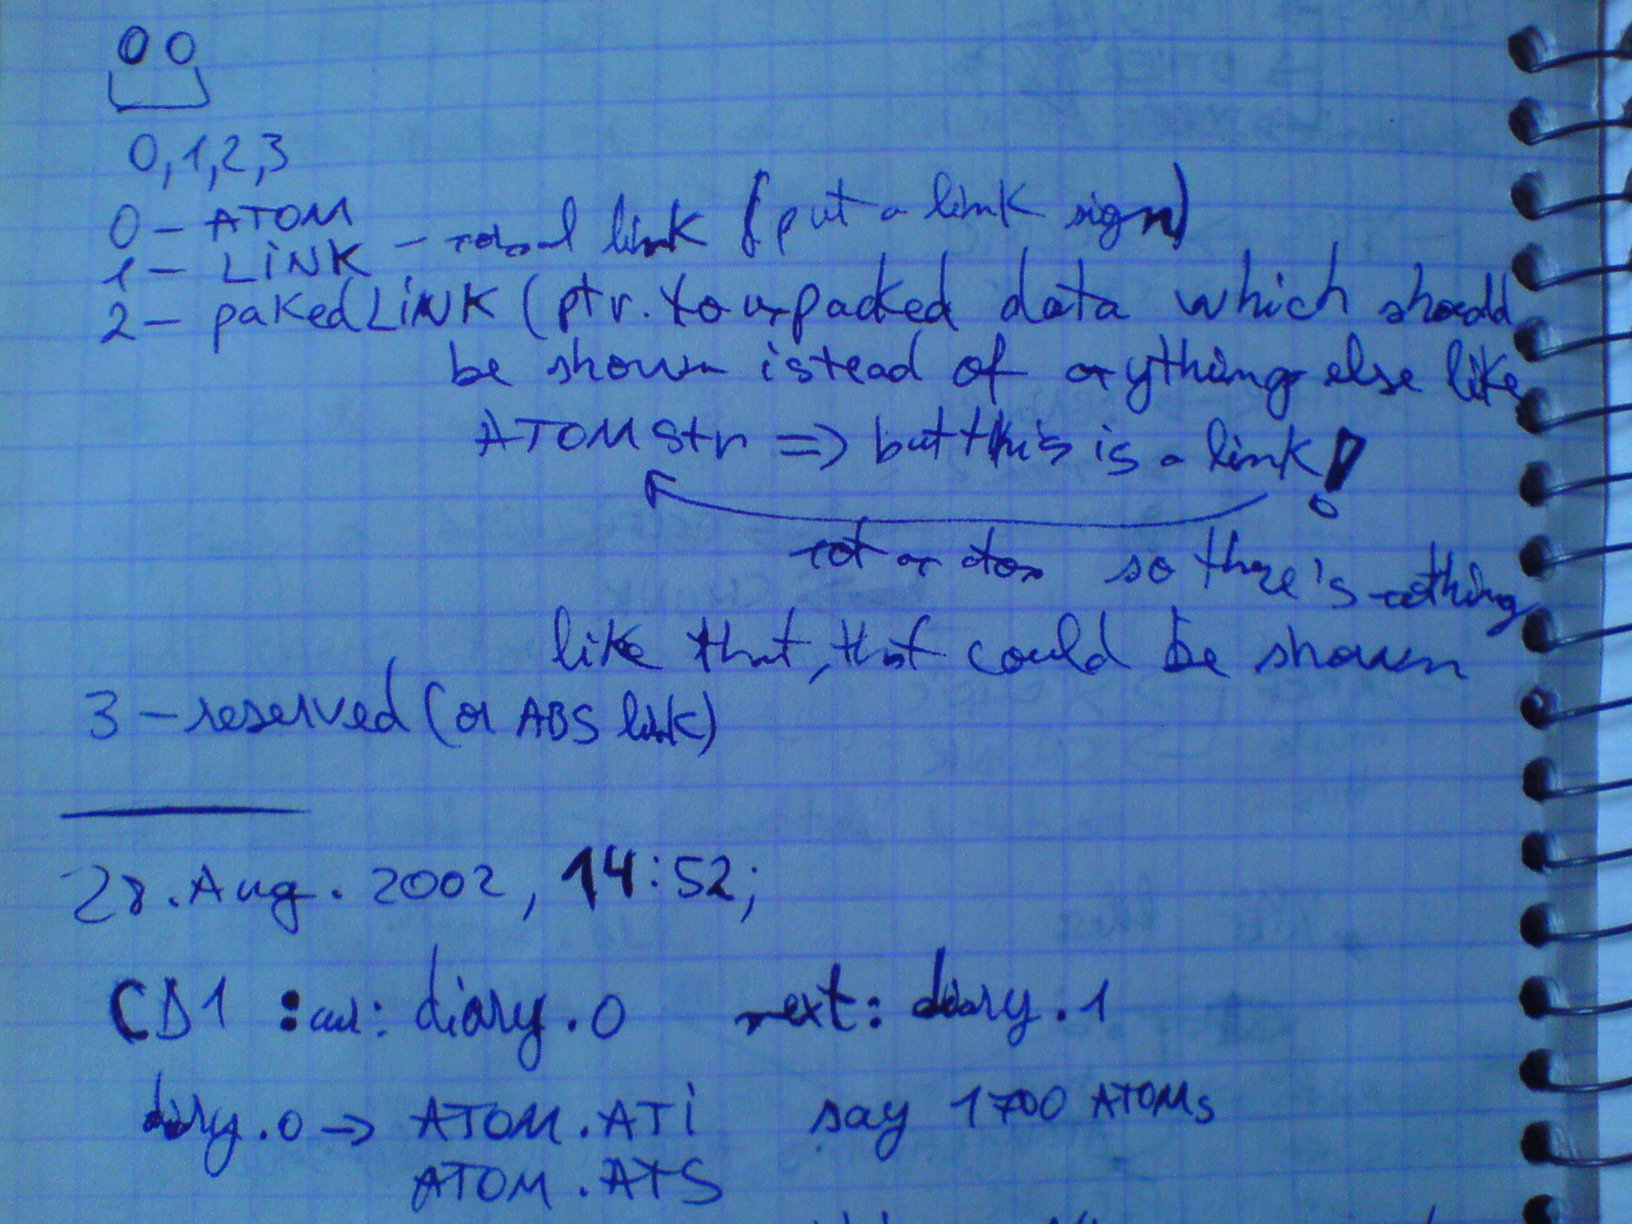 00
0,1,2,3
0 - ATOM
1 - LiNK - normal link (put a link sign)
2 - pakedLiNK (ptr. to unpacked data which should
be shown istead of anything else like
ATOMstr => but this is a link!
not an atom so there's nothing
like that, that could be shown
3 - reserved (or ABS link)
28.Aug. 2002, 14:52;
CD1 : cur: diary.0 next: diary.1
diary.0 -> ATOM.ATi say 1700 ATOMs
ATOM.ATS